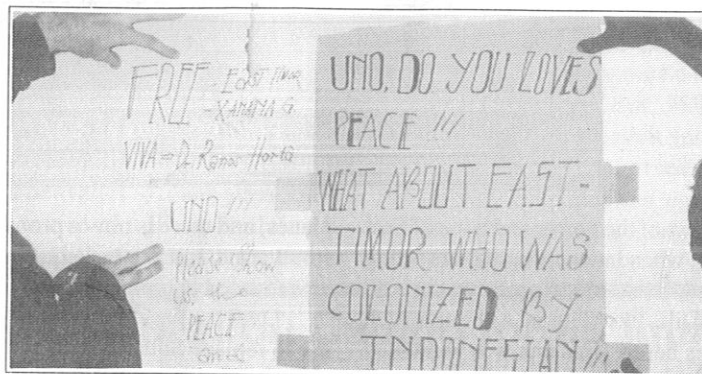 FREE - EAST TIMOR
- XANANA G.
VIVA => D. Ramos Horta
UNO !!!
Please Show
us, the
PEACE
UNO, DO YOU LOVES
PEACE !!!
WHAT ABOUT EAST-
TIMOR WHO WAS
COLONIZED By
INDONESIAN !!!